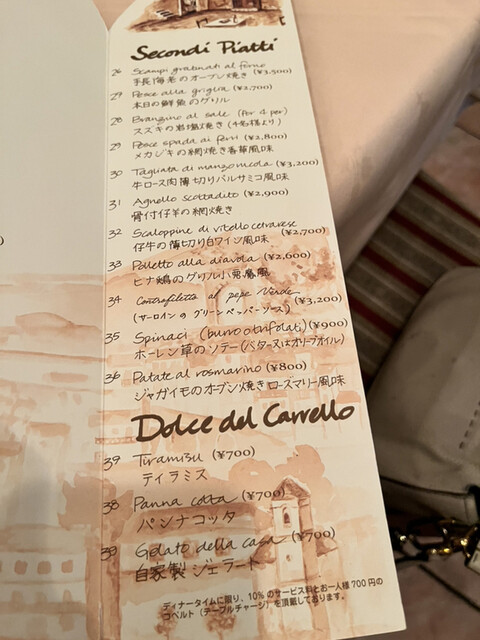 Secondi Piatti
26 Scampi gratinati al forno (¥3,300)
手長海老のオーブン焼き
27 Pesce alla griglia (¥2,700)
本日の鮮魚のグリル
28 Branzino al sale (per 4 per)
スズキの岩塩焼き(4名様より)
29 Pesce spada ai ferri (¥2,800)
メカジキの網焼き香草風味
30 Tagliata di manzo rucola (¥3,200)
牛ロース肉薄切りバルサミコ風味
31 Agnello scottadito (¥2,900)
骨付仔羊の網焼き
32 Scaloppine di vitello cetrarese (¥2,700)
仔牛の薄切り白ワイン風味
33 Polletto alla diavola (¥2,600)
ヒナ鶏のグリル小悪魔風
34 Controfiletto al pepe Verde (¥3,200)
(サーロインの グリーンペッパーソース)
35 Spinaci (burro o trifolati) (¥900)
ホーレン草のソテー(バター又はオリーブオイル)
36 Patate al rosmarino (¥800)
ジャガイモのオーブン焼きロースマリー風味
Dolce del Carrello
39 Tiramisu (¥700)
ティラミス
38 Panna cotta (¥700)
パンナコッタ
39 Gelato della casa (¥700)
自家製 ジェラート
ディナータイムに限り、10%のサービス料とお一人様700円の
コペルト(テーブルチャージ)を頂戴しております。